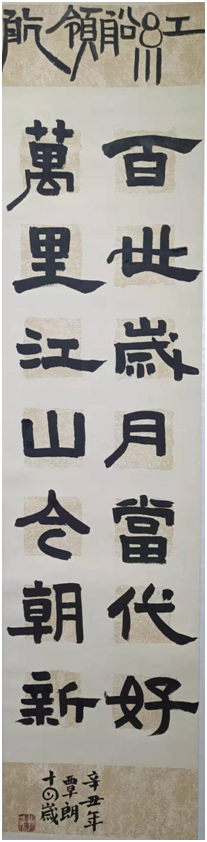 紅船領航
百世歲月當代好
萬里江山今朝新
辛丑年
覃朗
十四歲